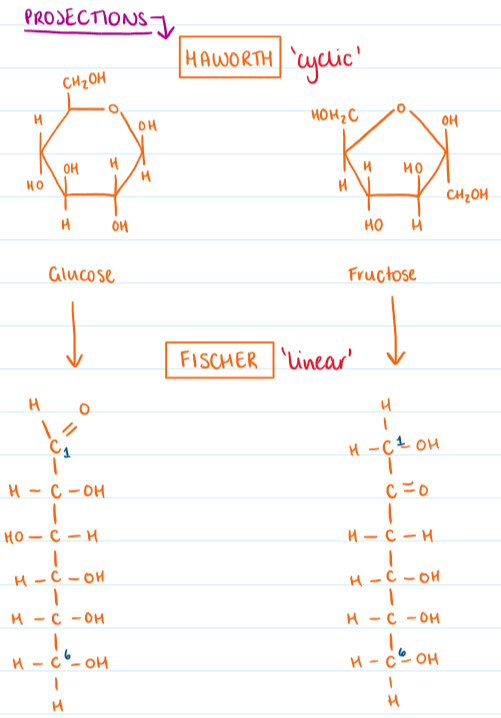 PROJECTIONS
HAWORTH 'cyclic'
CH₂OH
H O OH
OH H
HO H
H OH
HOH₂C O OH
H HO
H CH₂OH
HO H
Glucose Fructose
FISCHER 'linear'
H O
C1
H - C - OH
HO - C - H
H - C - OH
H - C - OH
H - C6 - OH
H
H
H - C1 - OH
C = O
H - C - H
H - C - OH
H - C - OH
H - C6 - OH
H